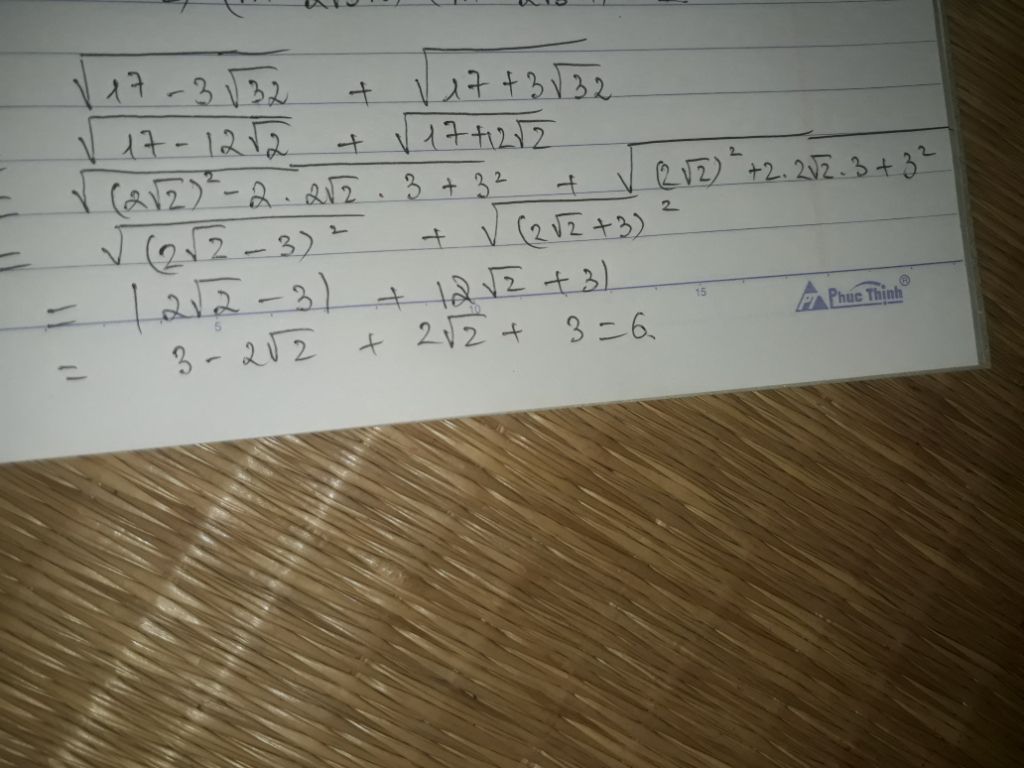 √17 - 3√32 + √17 + 3√32
√17 - 12√2 + √17 + 12√2
= √(2√2)² - 2 . 2√2 . 3 + 3² + √(2√2)² + 2 . 2√2 . 3 + 3²
= √(2√2 - 3)² + √(2√2 + 3)²
= |2√2 - 3| + |2√2 + 3|
5 10 15 Phuc Thinh®
= 3 - 2√2 + 2√2 + 3 = 6.